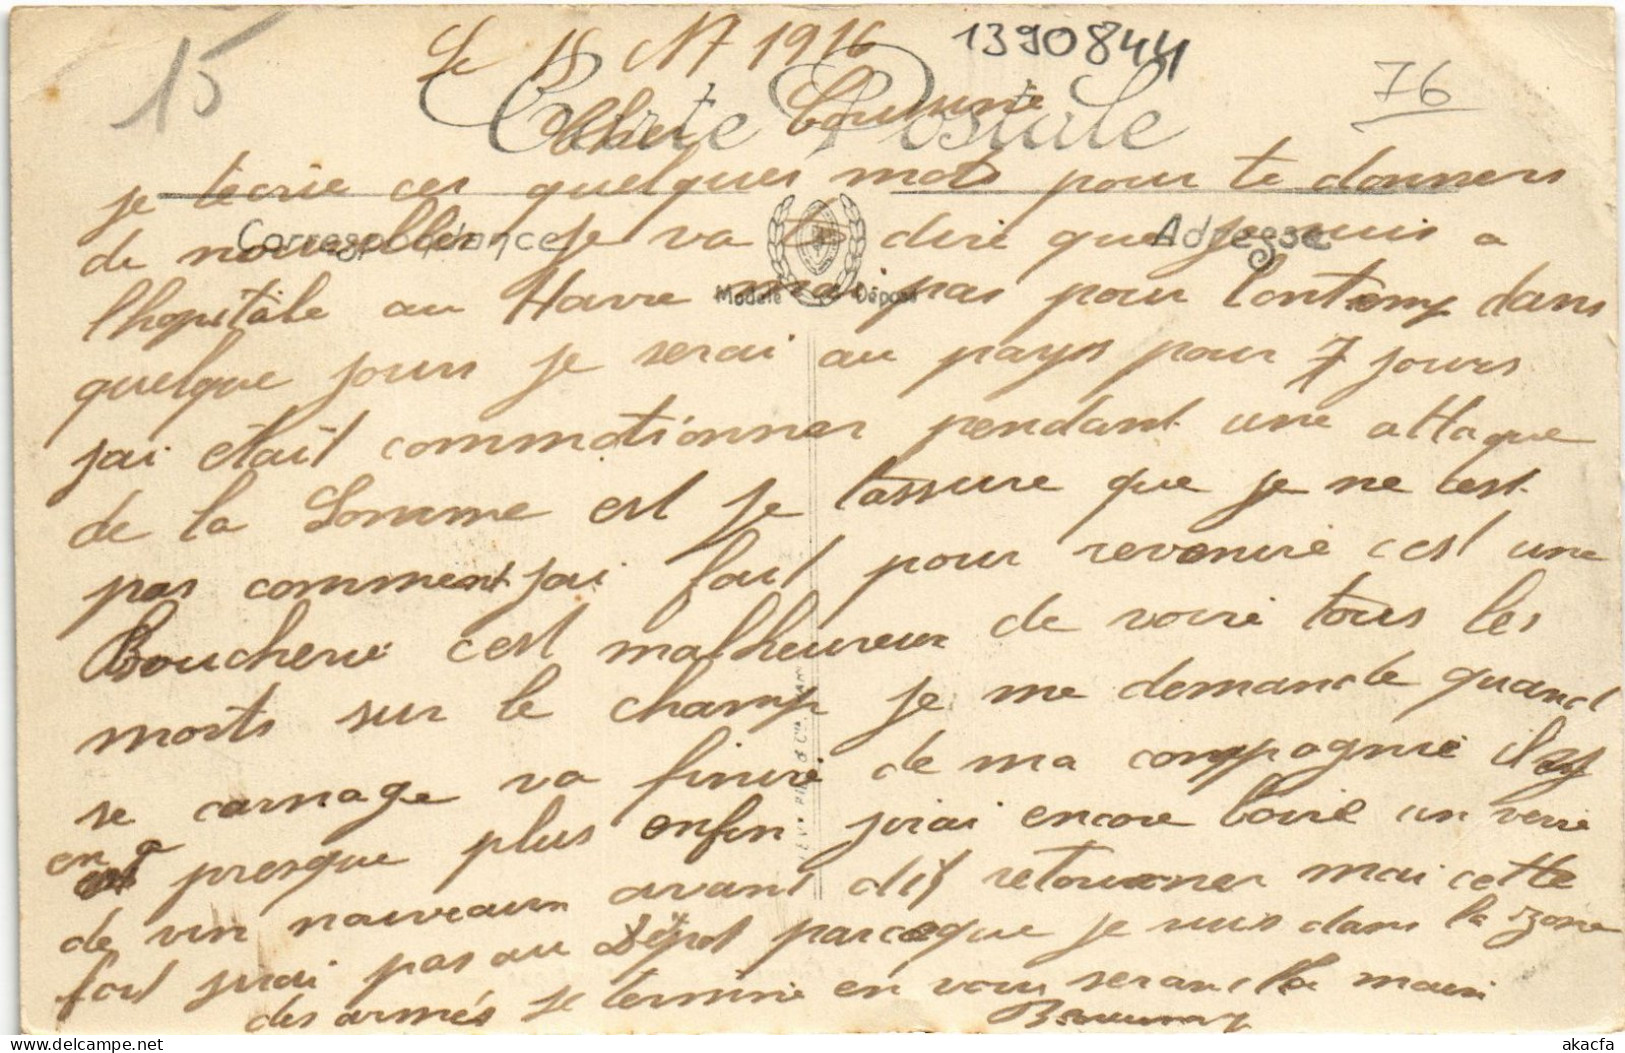 15
Le 15 1916
1390844
76
Carte Postale
Cher Cousin
je técrie ces quelques mots pour te donners
Correspondance
Adresse
de nouvelles je va te dire que je suis a
Modèle Déposé
lhopitâle au Havre mai pas pour lontemp dans
quelque jours je serai au pays pour 7 jours
jai êtait commotionner pendant une attaque
de la Somme est je tassure que je ne cest
pas comment jai fait pour revenire cest une
Boucherie cest malheureux de voire tous les
morts sur le champ je me demande quand
se carnage va finire de ma compagnie il y
en a presque plus enfin jirai encore boire un verre
de vin nouveaux avant dy retourner mai cette
foit jirai pas au Dépot parceque je suis dans la zone
des armés je termine en vous serant la main
akacfa